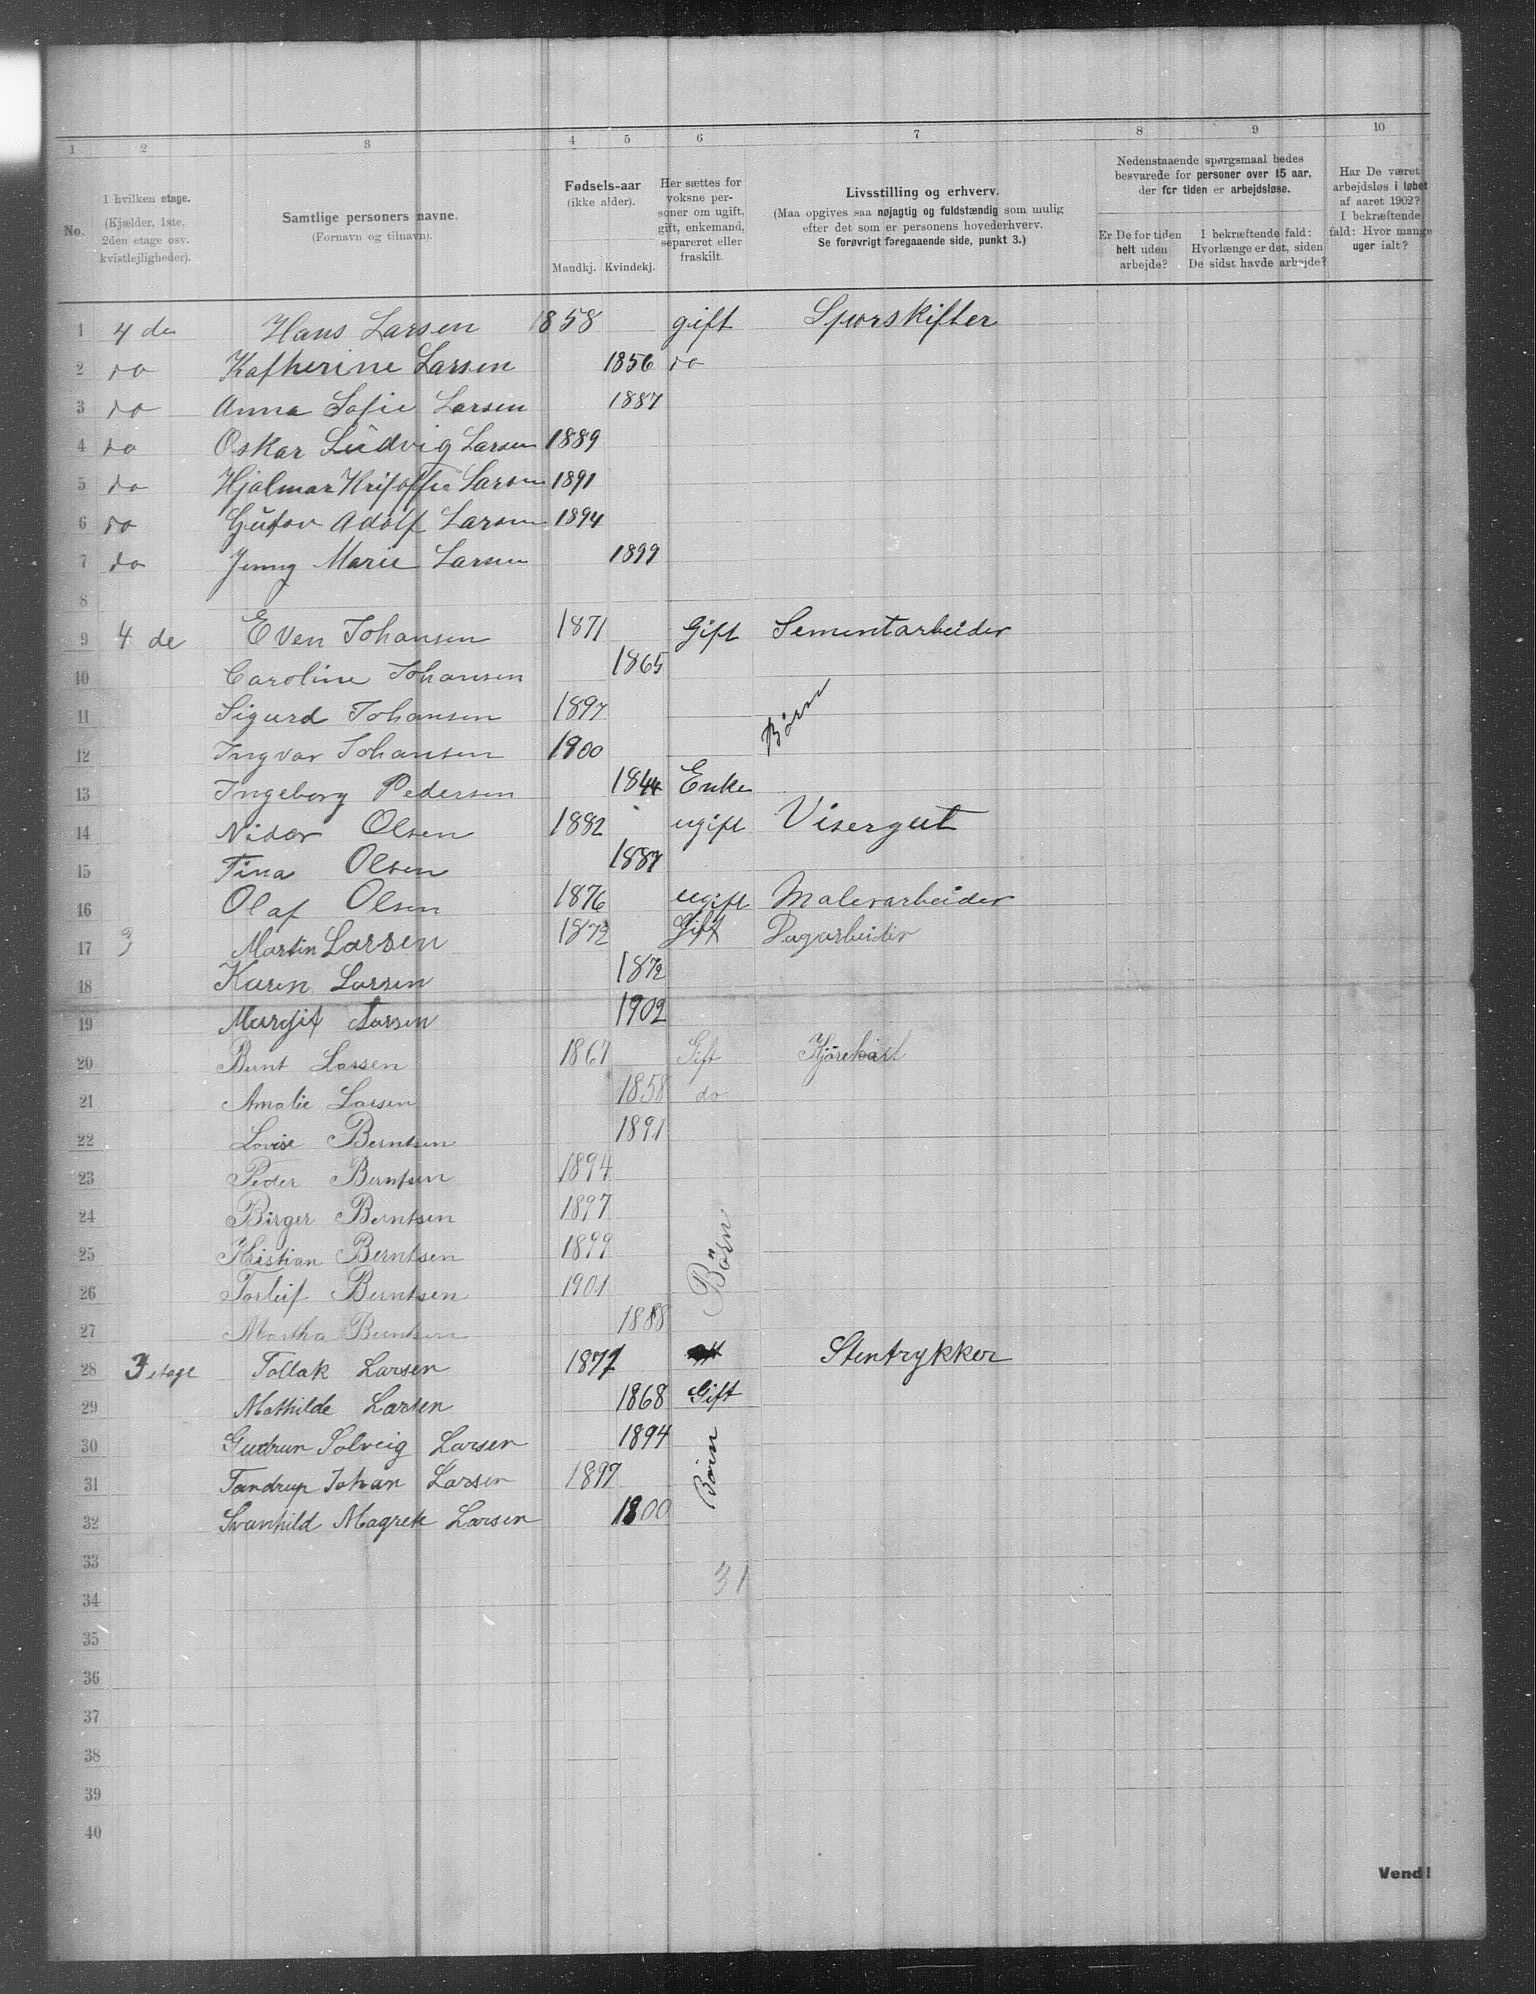 1 2 3 4 5 6 7 8 9 10
No.
I hvilken etage.
(Kjælder, 1ste,
2den etage osv.
kvistlejligheder).
Samtlige personers navne.
(Fornavn og tilnavn).
Fødsels-aar
(ikke alder).
Mandkj. Kvindekj.
Her sættes for
voksne per-
soner om ugift,
gift, enkemand,
separeret eller
fraskilt.
Livsstilling og erhverv.
(Maa opgives saa nøjagtig og fuldstændig som mulig
efter det som er personens hovederhverv.
Se forøvrigt foregaaende side, punkt 3.)
Nedenstaaende spørgsmaal bedes
besvarede for personer over 15 aar,
der for tiden er arbejdsløse.
Er De for tiden
helt uden
arbejde?
I bekræftende fald:
Hvorlænge er det, siden
De sidst havde arbejde?
Har De været
arbejdsløs i løbet
af aaret 1902?
I bekræftende
fald: Hvor mange
uger ialt?
1 4 de Hans Larsen 1858 gift Sporskifter
2 do Katherine Larsen 1856 do
3 do Anna Sofie Larsen 1887
4 do Oskar Ludvig Larsen 1889
5 do Hjalmar Kristoffer Larsen 1891
6 do Gustav Adolf Larsen 1894
7 do Jenny Marie Larsen 1899
8
9 4 de Even Johansen 1871 Gift Sementarbeider
10 Caroline Johansen 1865
11 Sigurd Johansen 1897 Børn
12 Ingvar Johansen 1900
13 Ingeborg Pedersen 1844 Enke
14 Nidar Olsen 1882 ugift Visergut
15 Tina Olsen 1887
16 Olaf Olsen 1876 ugift Malerarbeider
17 3 Martin Larsen 1872 Gift Dagarbeider
18 Karen Larsen 1872
19 Margit Larsen 1902
20 Bernt Larsen 1867 Gift Kjørekarl
21 Amalie Larsen 1858 do
22 Lovise Berntsen 1891
23 Peder Berntsen 1894
24 Birger Berntsen 1897 Børn
25 Kristian Berntsen 1899
26 Torleif Berntsen 1901
27 Martha Berntsen 1888
28 3 etage Tollak Larsen 1871 Stentrykker
29 Mathilde Larsen 1868 Gift
30 Gudrun Solveig Larsen 1894 Børn
31 Tandrup Johan Larsen 1897
32 Svanhild Magrete Larsen 1800
33
31
34
35
36
37
38
39
40
Vend!